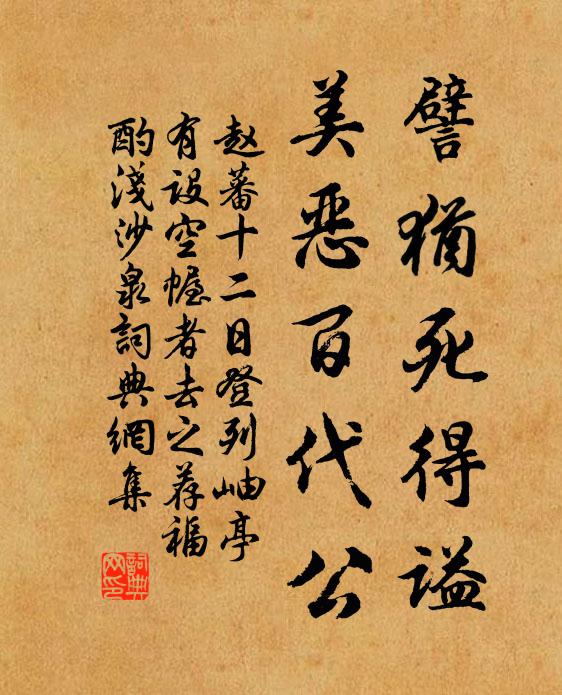 譬猶死得謚
美恶百代公
赵蕃十二日登列岫亭
有設空幄者去之荐福
酌淺沙泉詞典網集
詞典
网印